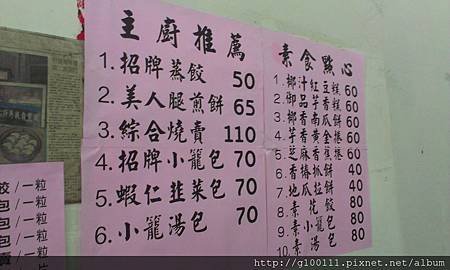 主廚推薦
1. 招牌蒸餃 50
2. 美人腿煎餅 65
3. 綜合燒賣 110
4. 招牌小籠包 70
5. 蝦仁韮菜包 70
6. 小籠湯包 70
素食點心
1. 椰汁紅豆糕 60
2. 御品芋香糕 60
3. 椰香南瓜餅 60
4. 芋香黃金捲 60
5. 芝麻香蕉捲 60
6. 香椿抓餅 40
7. 地瓜拉餅 40
8. 素花餃 80
9. 素小籠包 80
10. 素湯包 80
餃/一粒
包/一粒
包/一粒
包/一粒
賣/一粒
http://g100111.pixnet.net/album